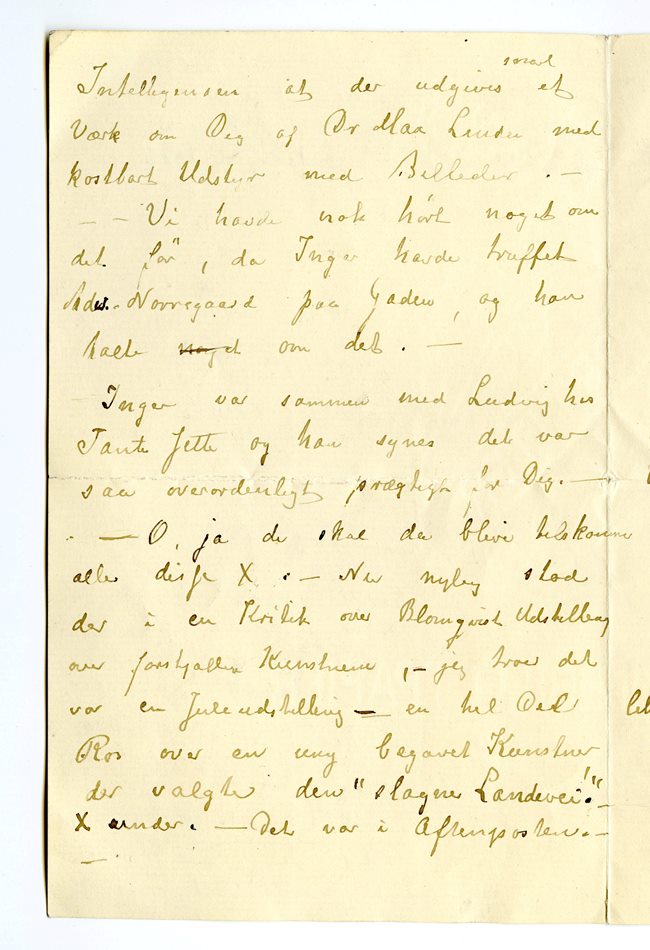 snart
Intelligensen at der udgives et
Værk om Dig af Dr Max Linde med
kostbart Udstyr med Billeder . –
– – Vi havde nok hørt noget om
det før , da Inger havde truffet
Nørregaard paa Gaden , og han
talte noget om det . –
Inger var sammen med Ludvig hos
Tante Jette og han synes det var
saa overordenligt prægtigt for Dig. –
– O, ja de skal da blive tilskamme
alle disse X . – Nu nylig stod
der i en Kritik over Blomqvist Udstilling
over forskjallige Kunstnere , – jeg troer det
var en Juleudstilling – en hel Del
Ros over en ung begavet Kunstner
der valgte den "slagne Landevei!"
X under. – Det var i Aftenposten. –
–